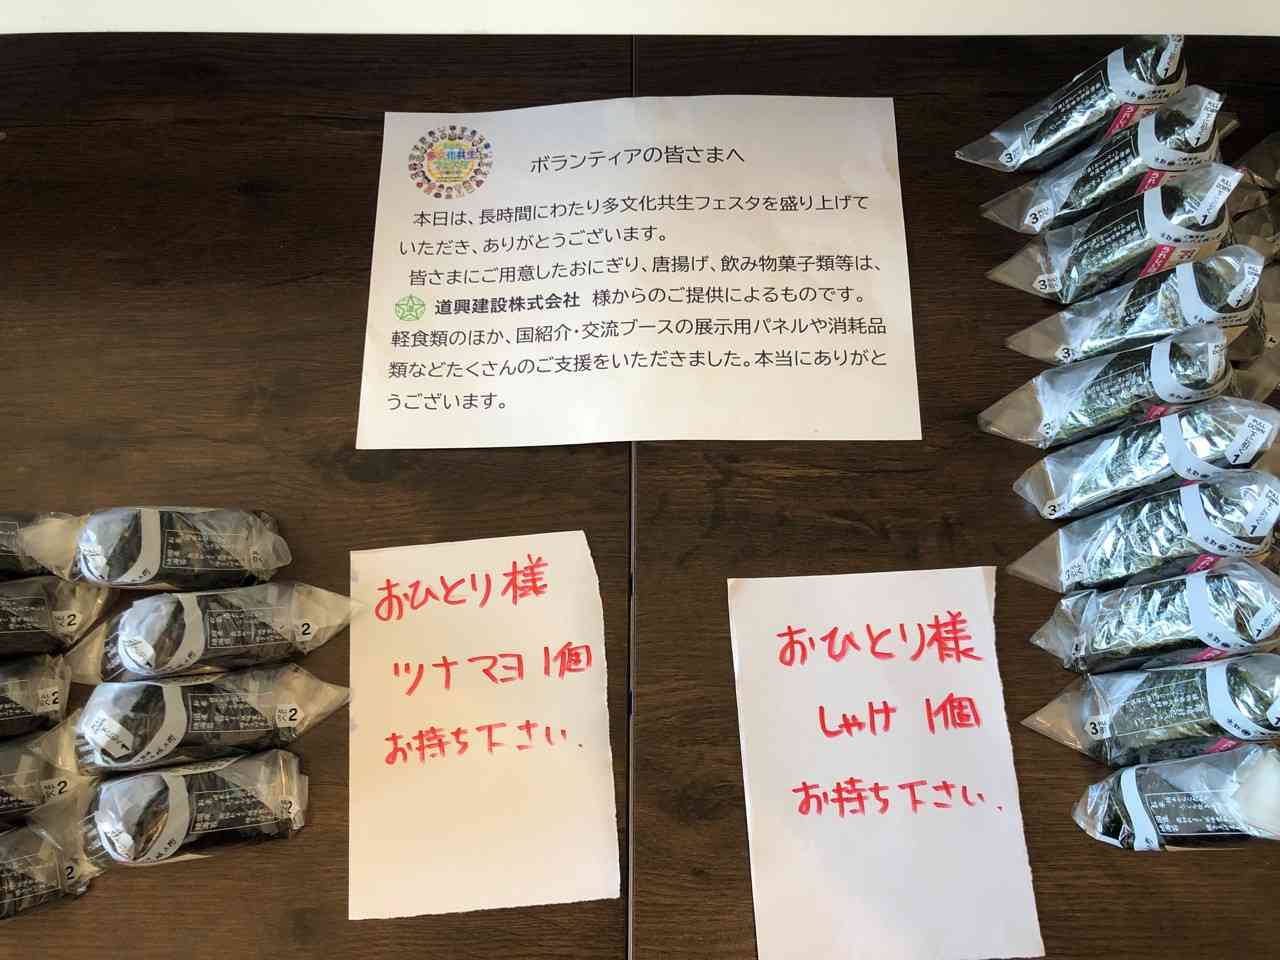 多文化共生
フェスタ
ボランティアの皆さまへ
本日は、長時間にわたり多文化共生フェスタを盛り上げて
いただき、ありがとうございます。
皆さまにご用意したおにぎり、唐揚げ、飲み物菓子類等は、
道興建設株式会社 様からのご提供によるものです。
軽食類のほか、国紹介・交流ブースの展示用パネルや消耗品
類などたくさんのご支援をいただきました。本当にありがと
うございます。
おひとり様
ツナマヨ 1個
お持ち下さい.
おひとり様
しゃけ 1個
お持ち下さい.